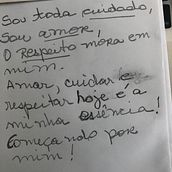 Sou toda cuidado,
Sou amor!
O respeito mora em
mim.
Amar, cuidar e
respeitar hoje é a
minha essência!
Começando por
mim!